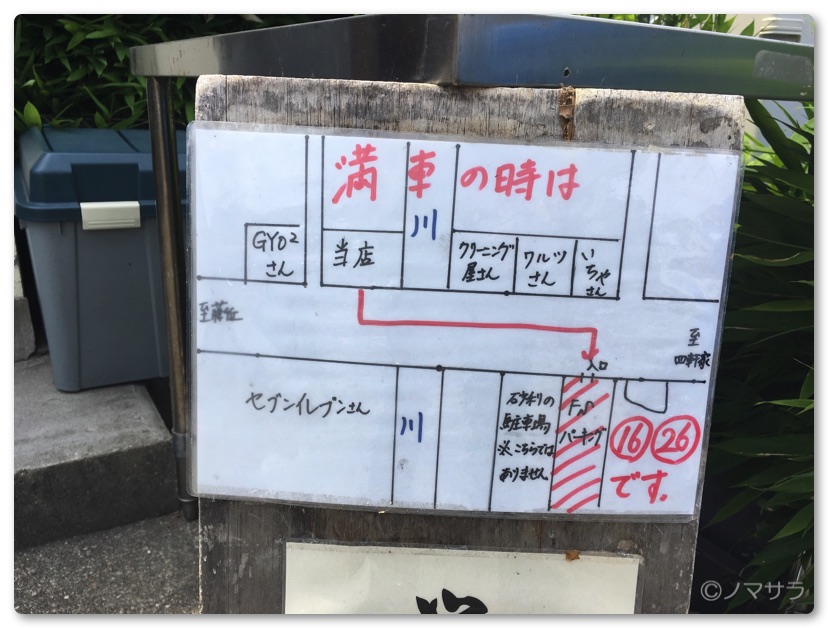 満車の時は
川
GYO²
さん
当店
クリーニング
屋さん
ワルツ
さん
い
ちゃ
さん
至
至
四軒家
入口
セブンイレブンさん
川
砂利の
駐車場
※こちらでは
ありません
パーキング
16 26
です.
©ノマサラ